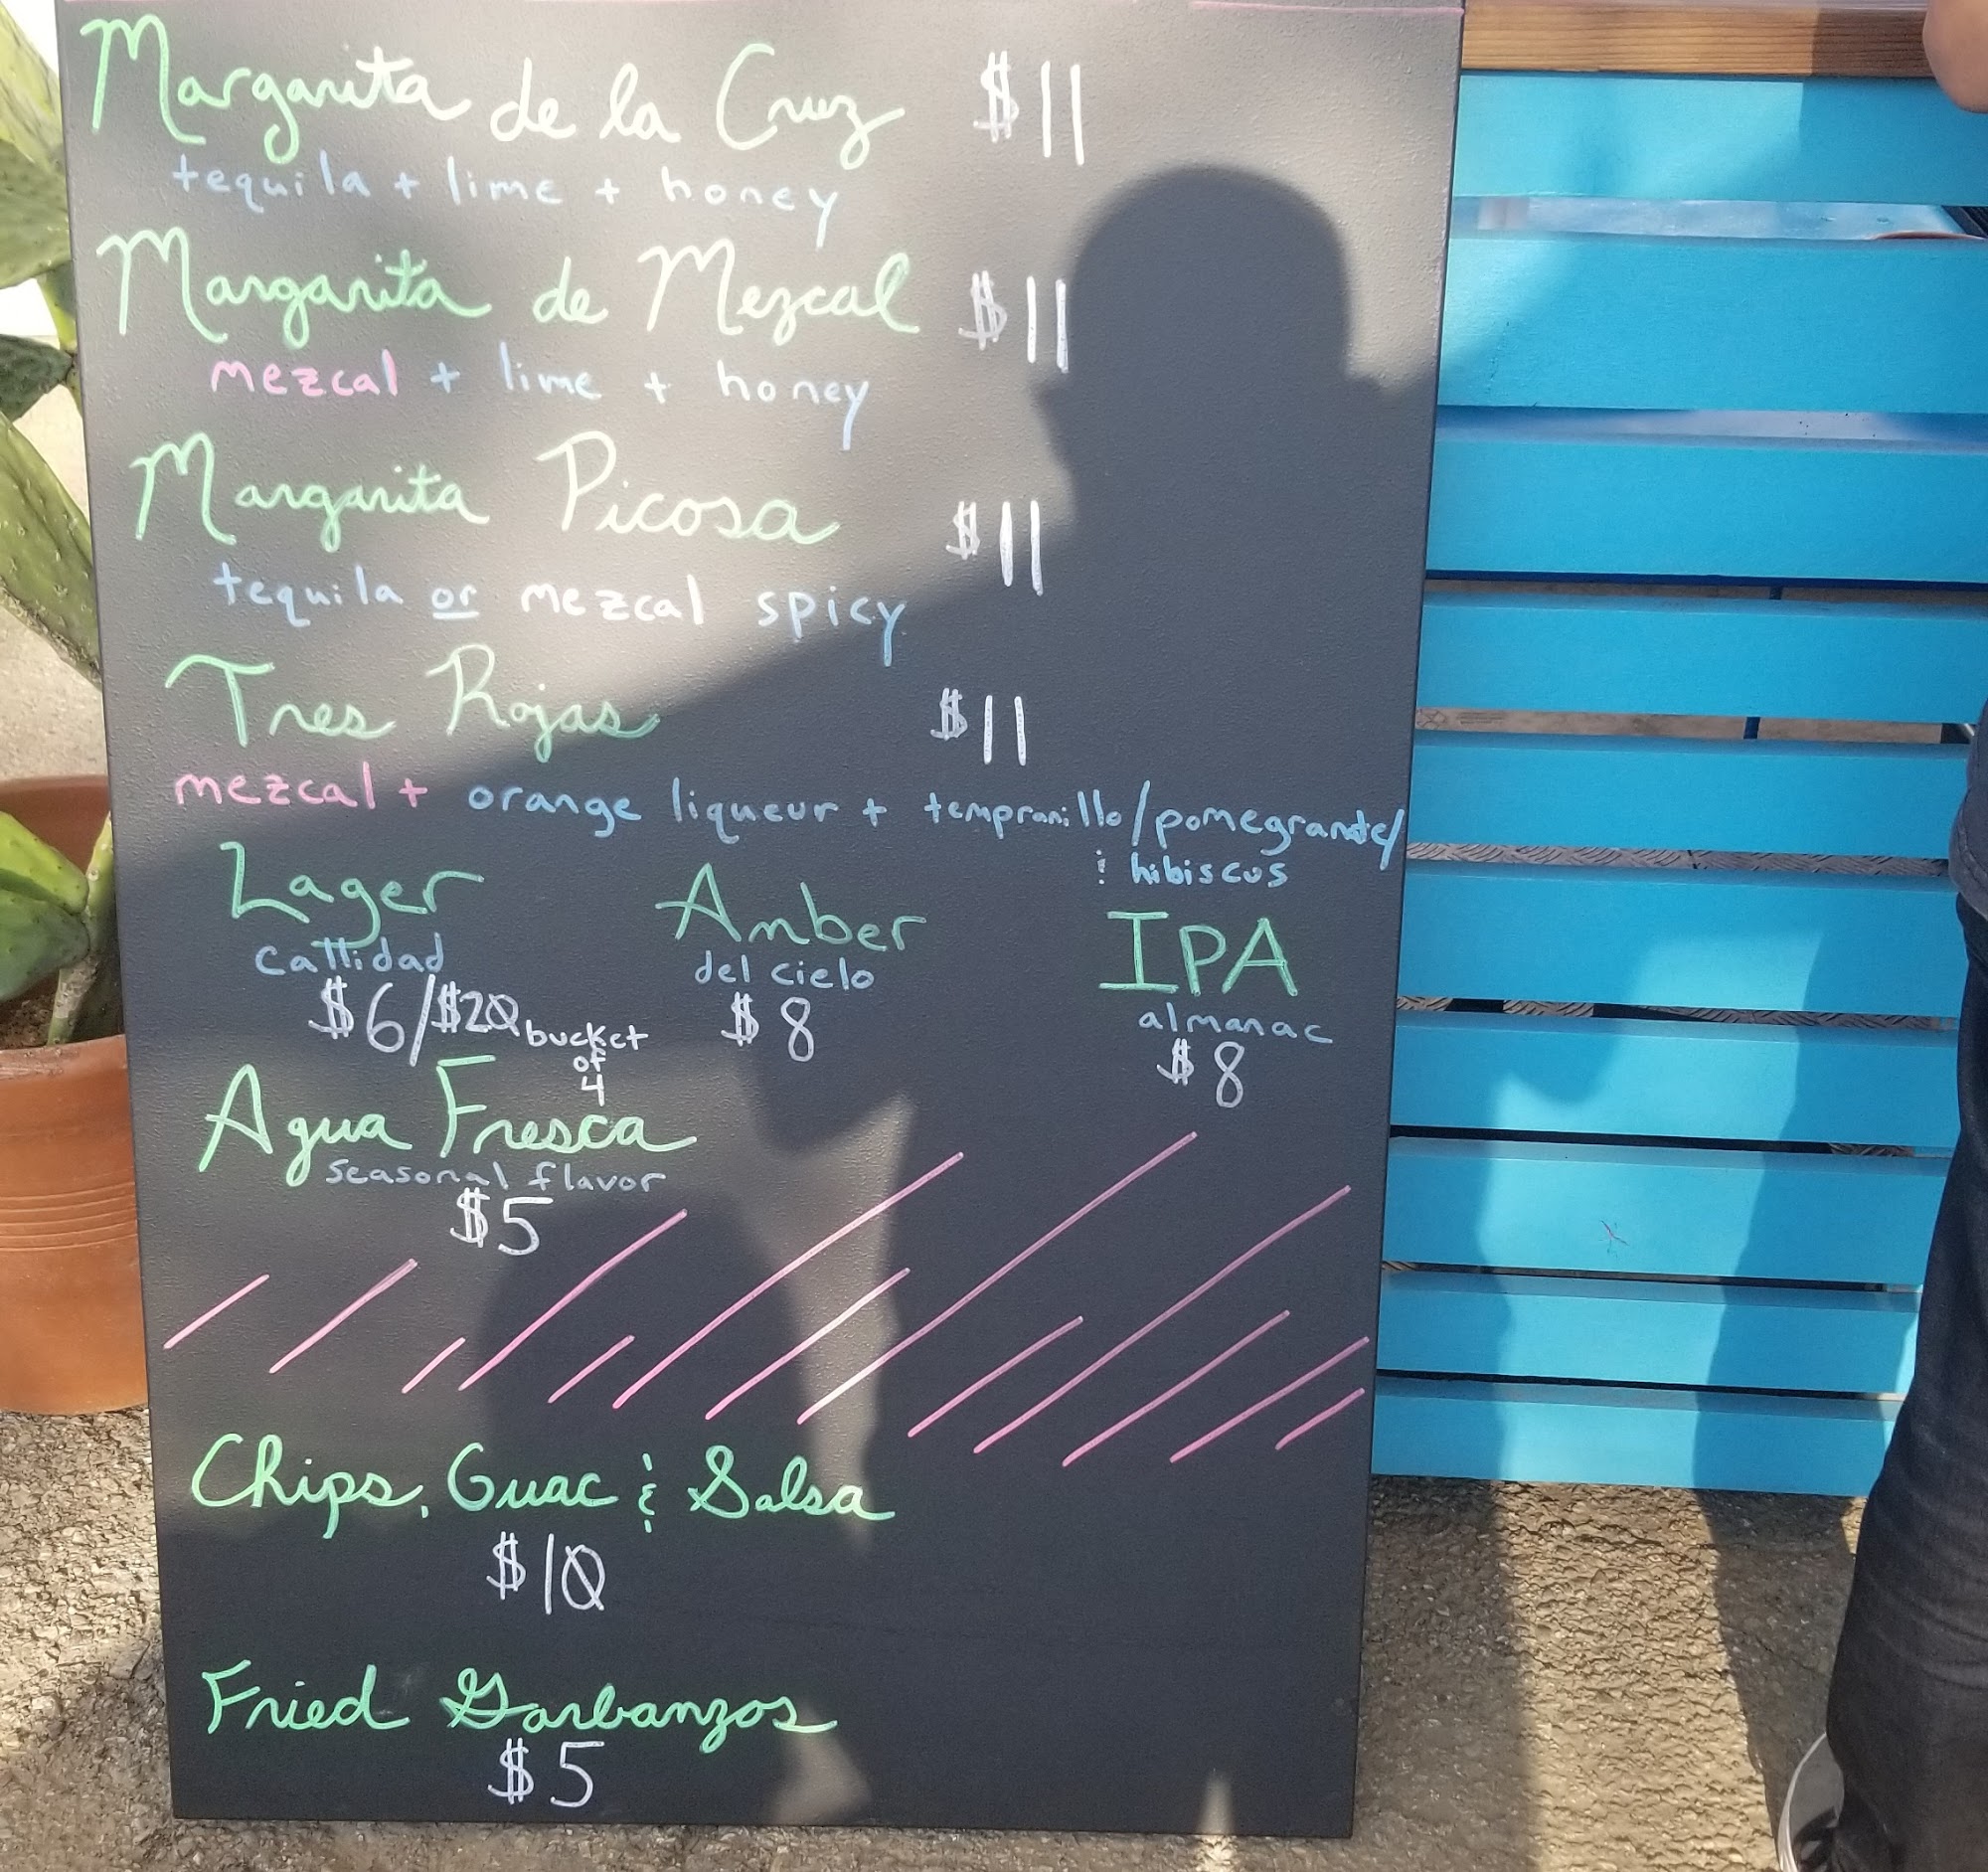 Margarita de la Cruz $11
tequila + lime + honey
Margarita de Mezcal $11
mezcal + lime + honey
Margarita Picosa $11
tequila or mezcal spicy
Tres Rojas $11
mezcal + orange liqueur + tempranillo/pomegranate/
& hibiscus
Lager Amber IPA
callidad del cielo almanac
$6/$20 bucket of 4 $8 $8
Agua Fresca
seasonal flavor
$5
Chips, Guac & Salsa
$10
Fried Garbanzos
$5